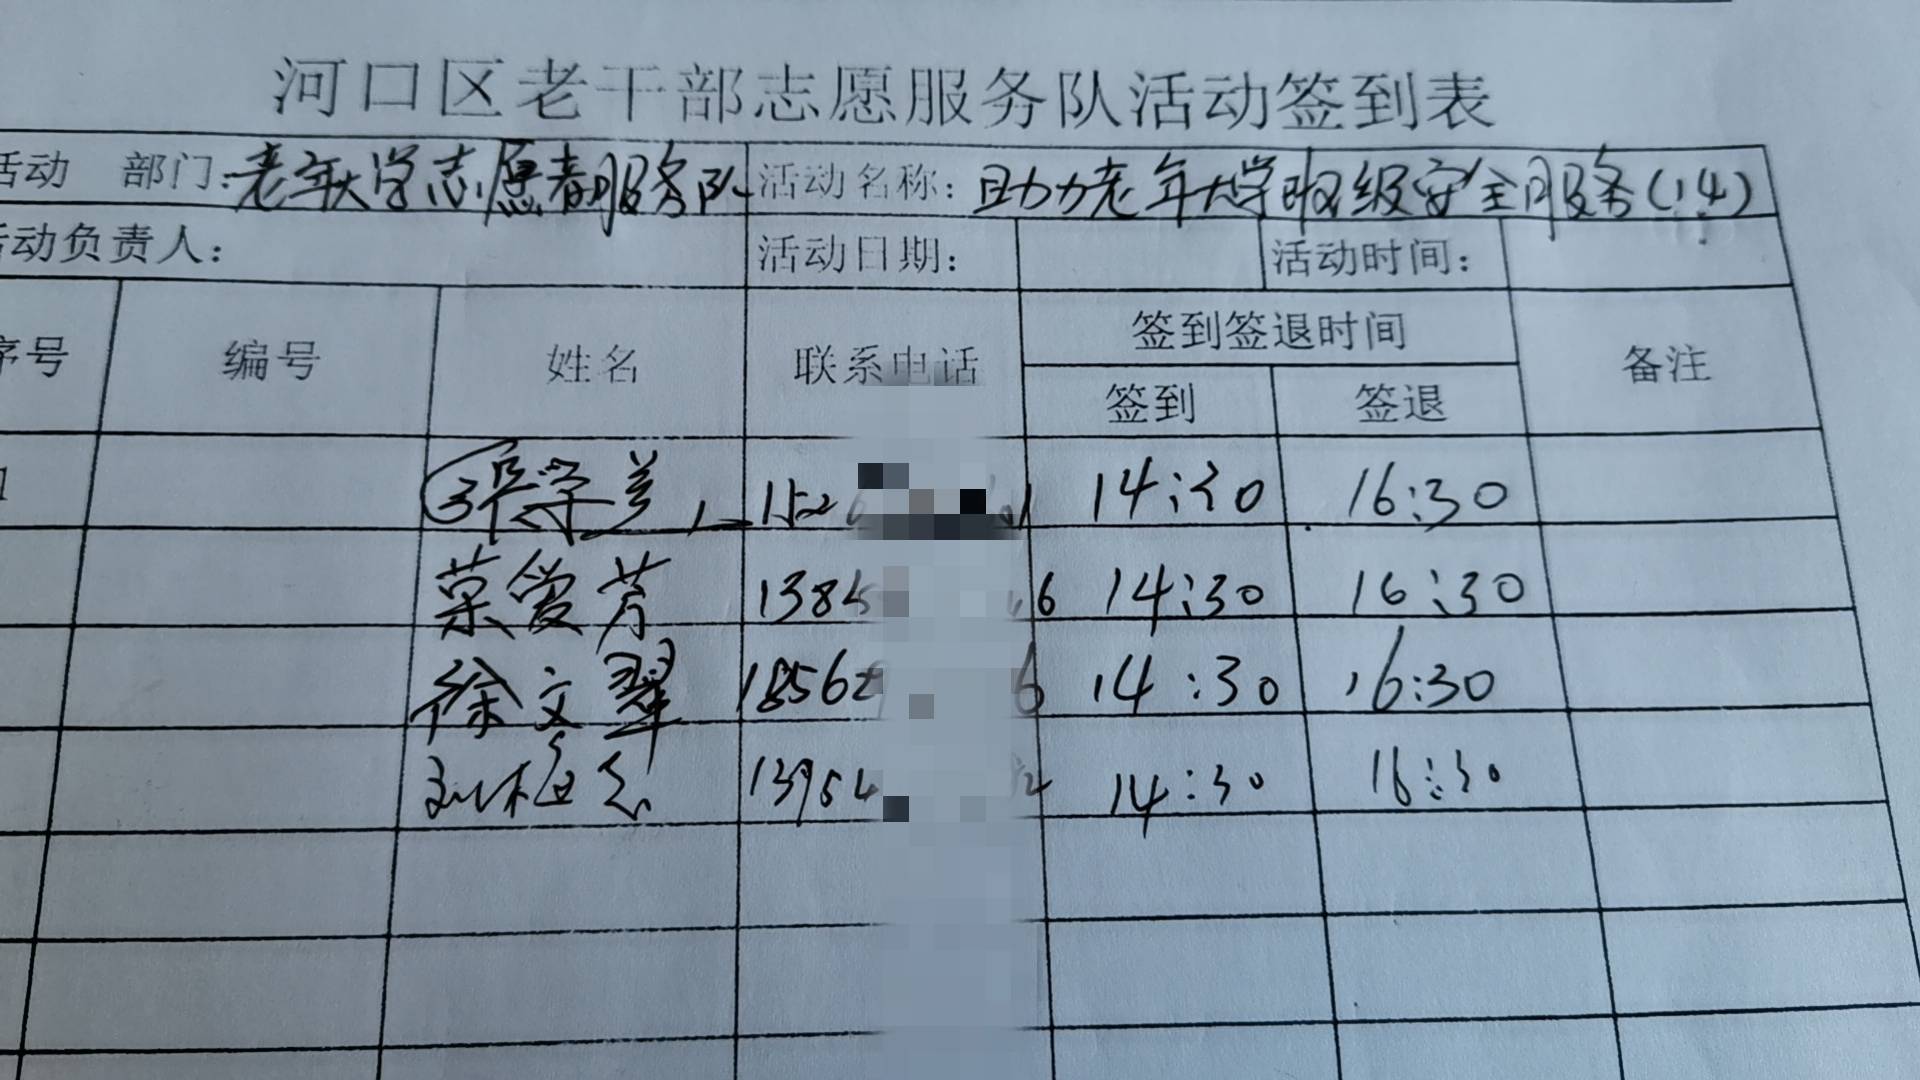 河口区老干部志愿服务队活动签到表
活动 部门:老年大学志愿者服务队 活动名称:助力老年大学班级安全服务(14)
活动负责人: 活动日期: 活动时间:
序号 编号 姓名 联系电话 签到签退时间 备注
签到 签退
1 14:30 16:30
荣爱芳 138 6 14:30 16:30
徐文翠 1856 6 14:30 16:30
1395 14:30 16:30